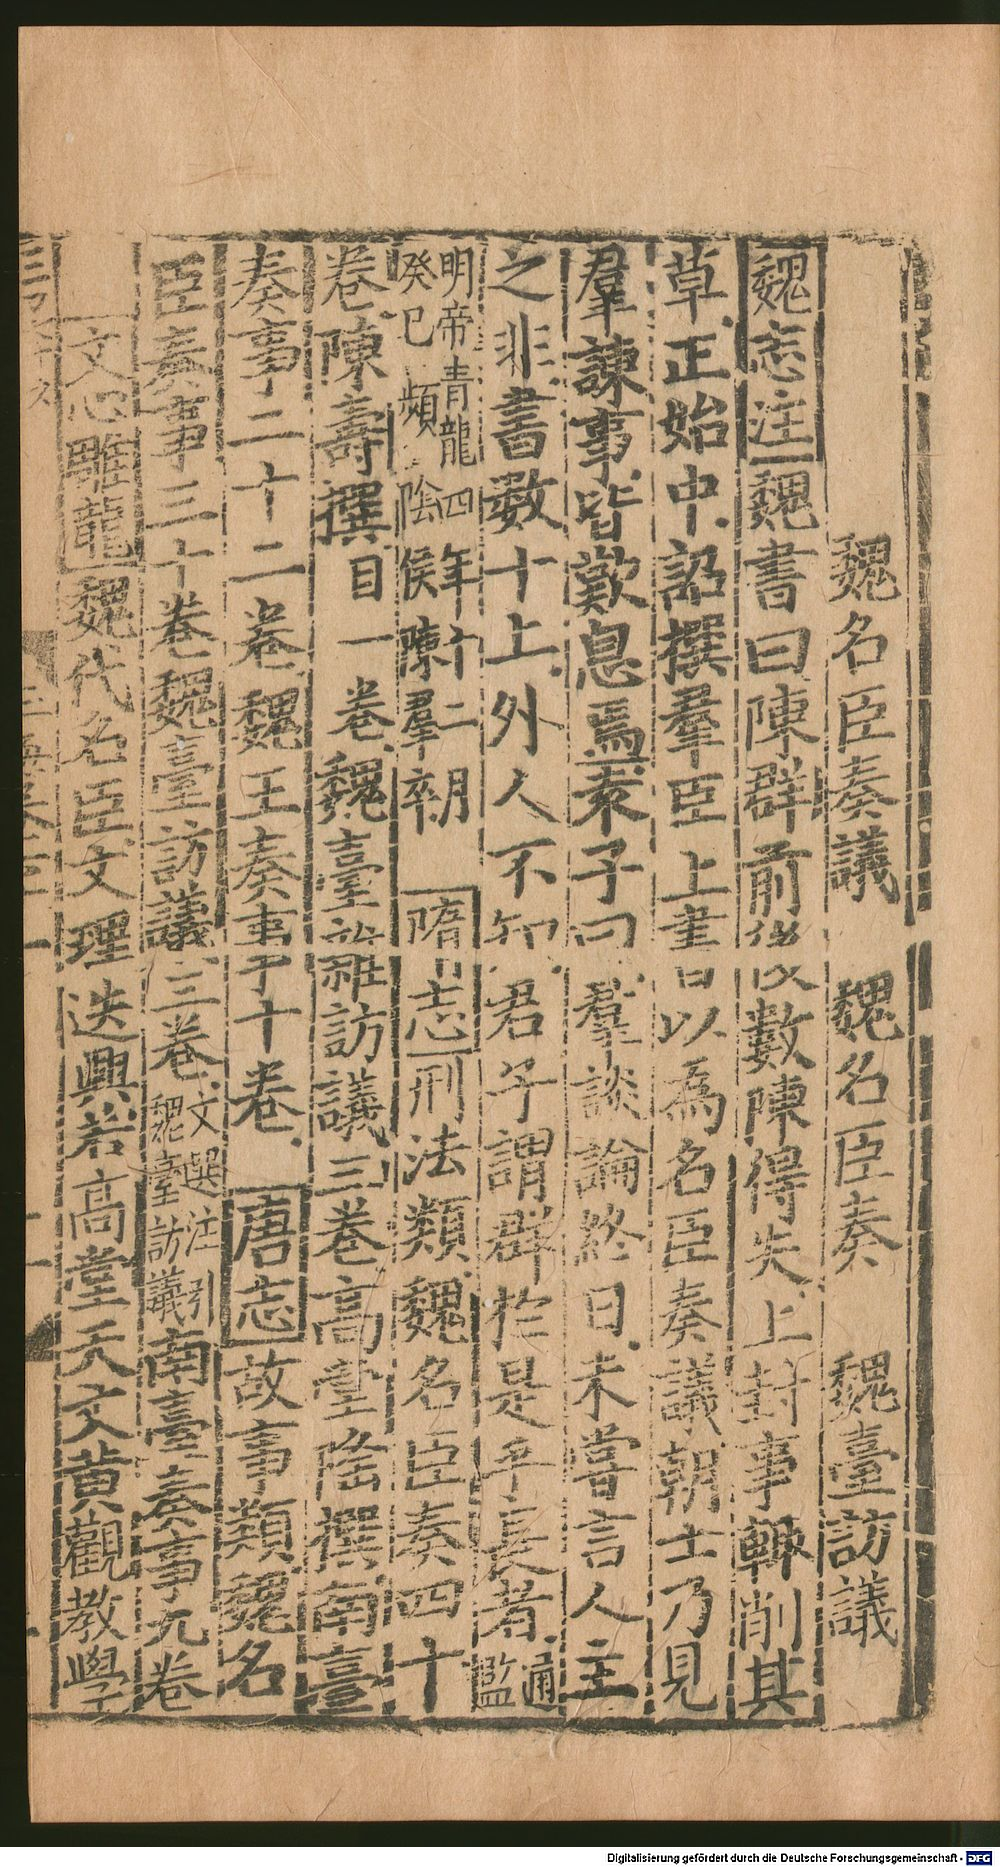 魏名臣奏議　魏名臣奏　魏臺訪議
魏志注魏書曰陳群前後數陳得失上封事輙削其
草正始中詔撰羣臣上書以為名臣奏議朝士乃見
羣諫事皆歎息焉袁子曰羣談論終日未嘗言人主
之非書數十上外人不知君子謂群於是乎長者通鑑
明帝青龍四年十二朝癸巳頻陰侯陳羣卒隋志刑法類魏名臣奏四十
卷陳壽撰目一卷魏臺雜訪議三卷高堂隆撰南臺
奏事二十二卷魏王奏事十卷唐志故事類魏名
臣奏事三十卷魏臺訪議三卷文選注引魏臺訪議南臺奏事九卷
文心雕龍魏代名臣文理迭興若高堂天文黃觀教學
Digitalisierung gefördert durch die Deutsche Forschungsgemeinschaft - DFG